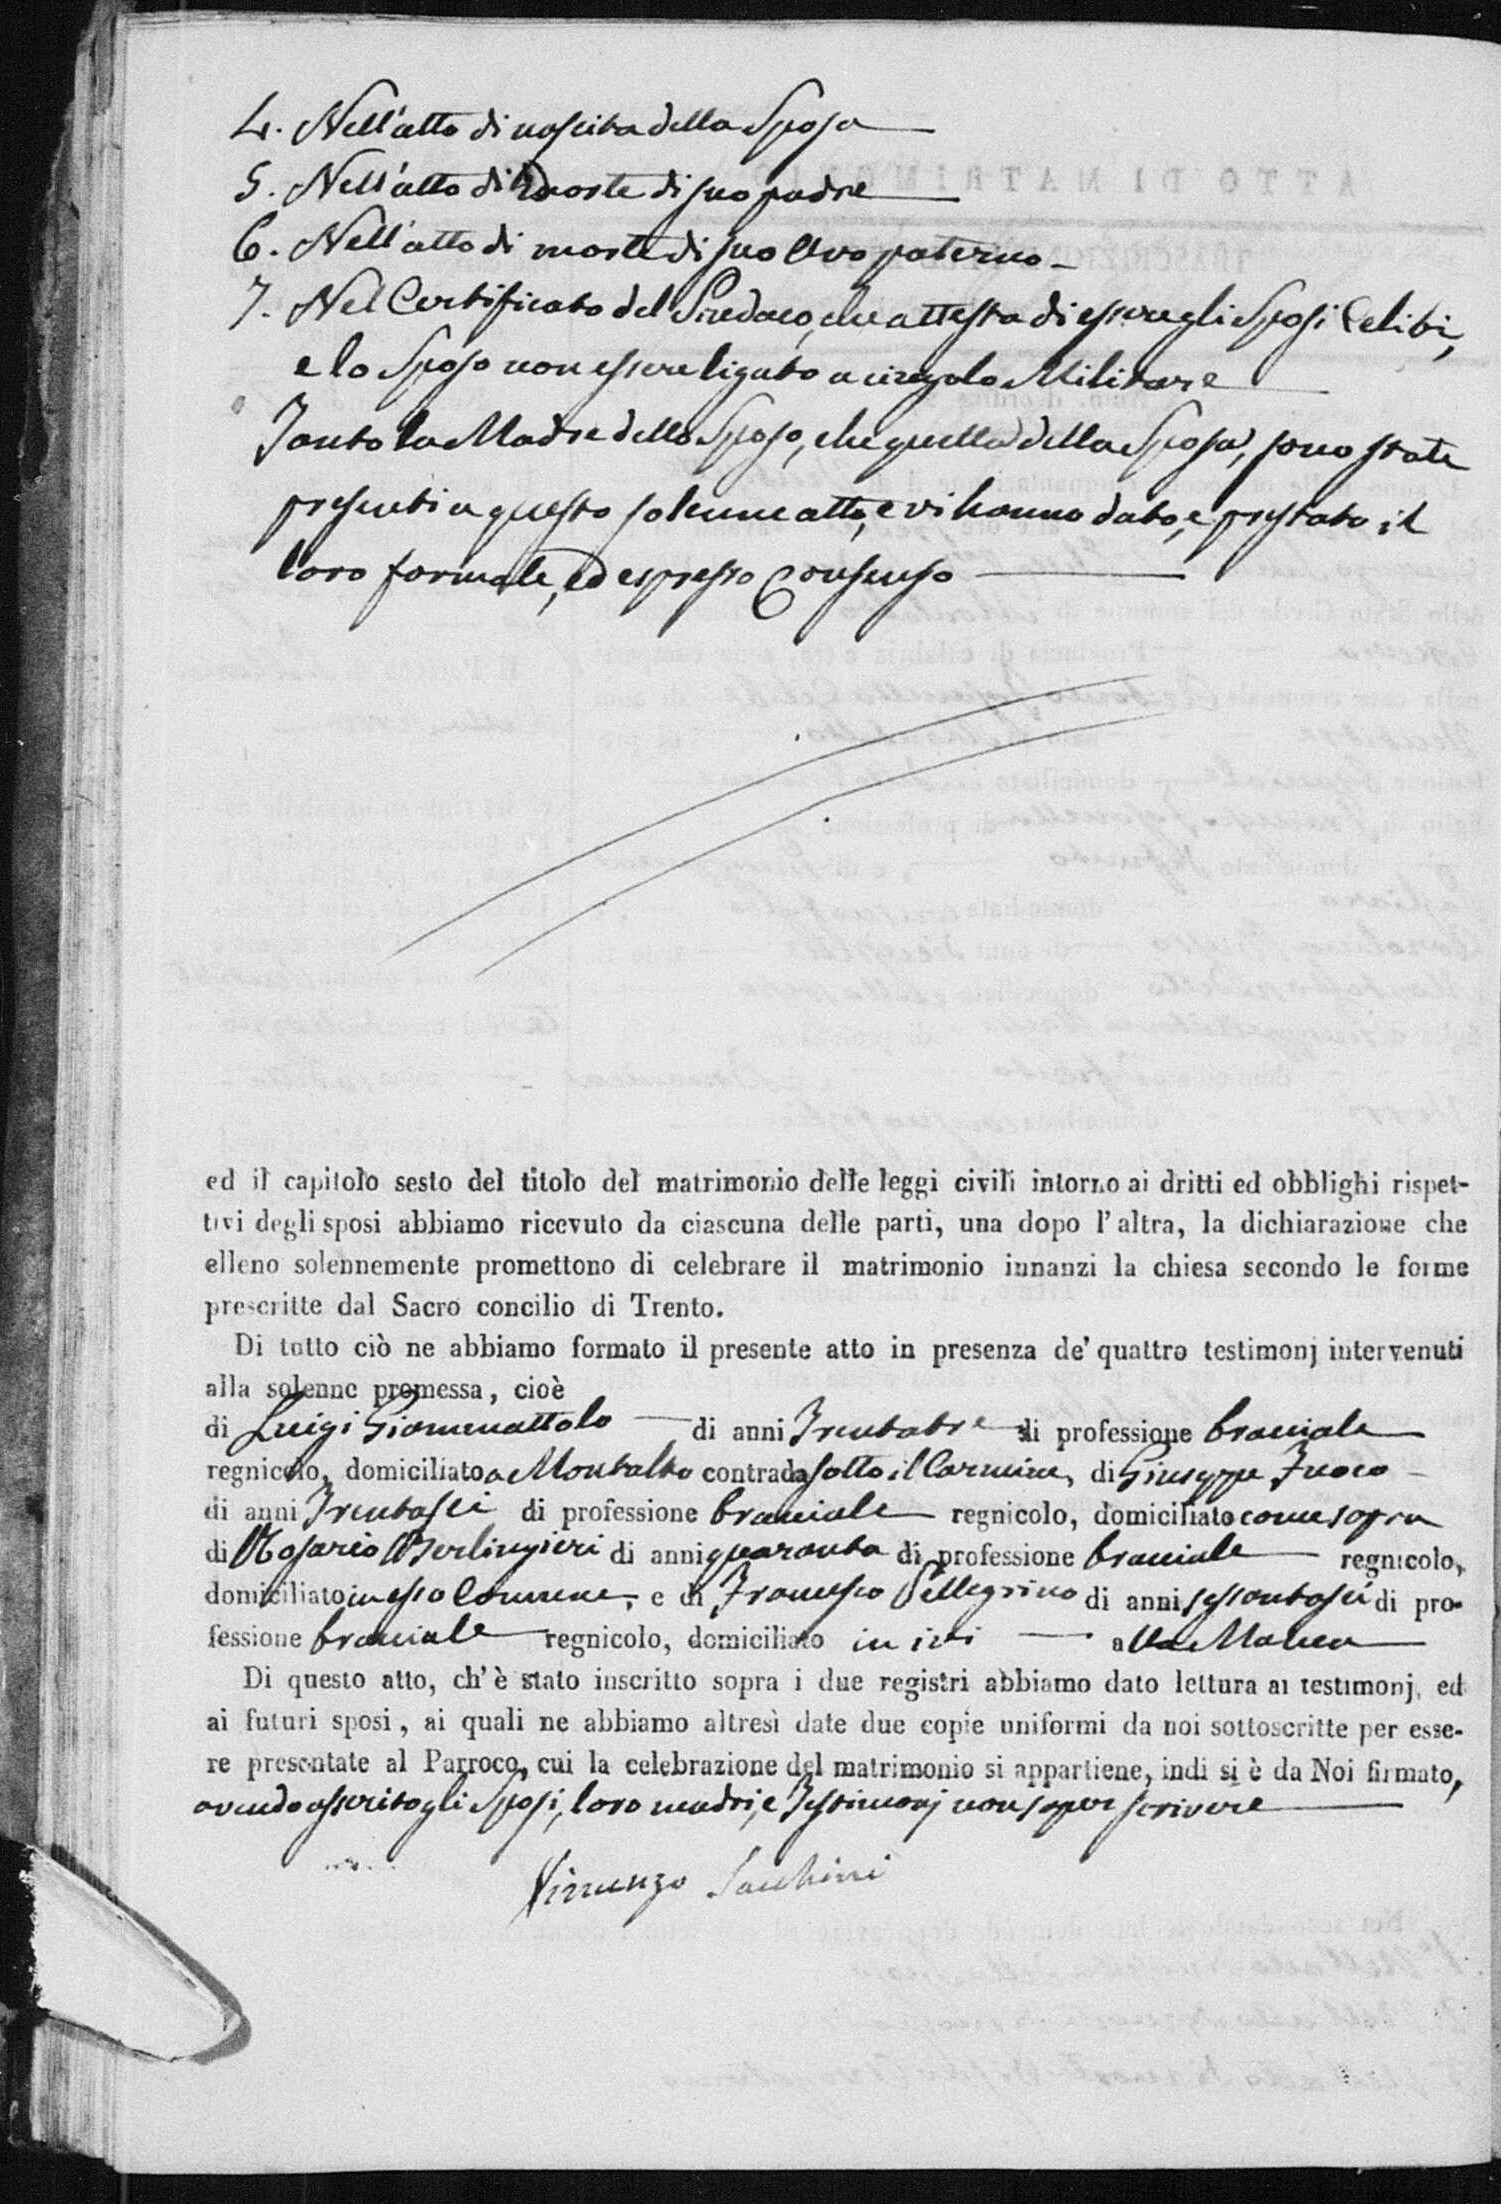 4. Nell'atto di nascita della Sposa
5. Nell'atto di morte di suo padre
6. Nell'atto di morte di suo Avo paterno
7. Nel Certificato del Sindaco, che attesta di essere gli Sposi Celibi,
e lo Sposo non essere ligato a vincolo Militare
Tanto la Madre dello Sposo, che quella della Sposa, sono state
presenti a questo solenne atto, e vi hanno dato, e prestato il
loro formale, ed espresso Consenso
ed il capitolo sesto del titolo del matrimonio delle leggi civili intorno ai dritti ed obblighi rispet-
tivi degli sposi abbiamo ricevuto da ciascuna delle parti, una dopo l'altra, la dichiarazione che
elleno solennemente promettono di celebrare il matrimonio innanzi la chiesa secondo le forme
prescritte dal Sacro concilio di Trento.
Di tutto ciò ne abbiamo formato il presente atto in presenza de' quattro testimonj intervenuti
alla solenne promessa, cioè
di Luigi Giommattolo di anni Trentatre di professione bracciale
regnicolo, domiciliato a Montalto contrada sotto il Carmine, di Giuseppe Fuoco
di anni Trentasei di professione bracciale regnicolo, domiciliato come sopra
di Rosario Berlingieri di anni quaranta di professione bracciale regnicolo,
domiciliato in esso Comune, e di Francesco Pellegrino di anni sessantasei di pro-
fessione bracciale regnicolo, domiciliato in ivi alla
Di questo atto, ch'è stato inscritto sopra i due registri abbiamo dato lettura ai testimonj, ed
ai futuri sposi, ai quali ne abbiamo altresì date due copie uniformi da noi sottoscritte per esse-
re presentate al Parroco, cui la celebrazione del matrimonio si appartiene, indi si è da Noi firmato,
avendo asserito gli Sposi, loro madri, e Testimonj non saper scrivere
Vincenzo Sacchini